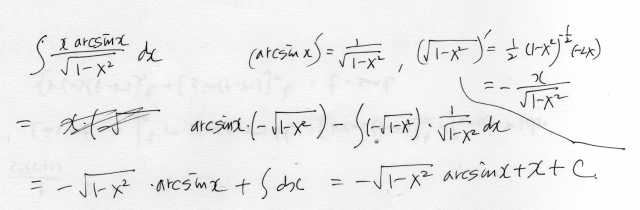 ∫ x arcsinx / √(1-x²) dx (arcsinx)' = 1/√(1-x²) , (√(1-x²))' = 1/2 (1-x²)^(-1/2) (-2x)
= - x/√(1-x²)
= arcsinx·(-√(1-x²)) - ∫(-√(1-x²))·1/√(1-x²) dx
= -√(1-x²) ·arcsinx + ∫dx = -√(1-x²) arcsinx + x + C.